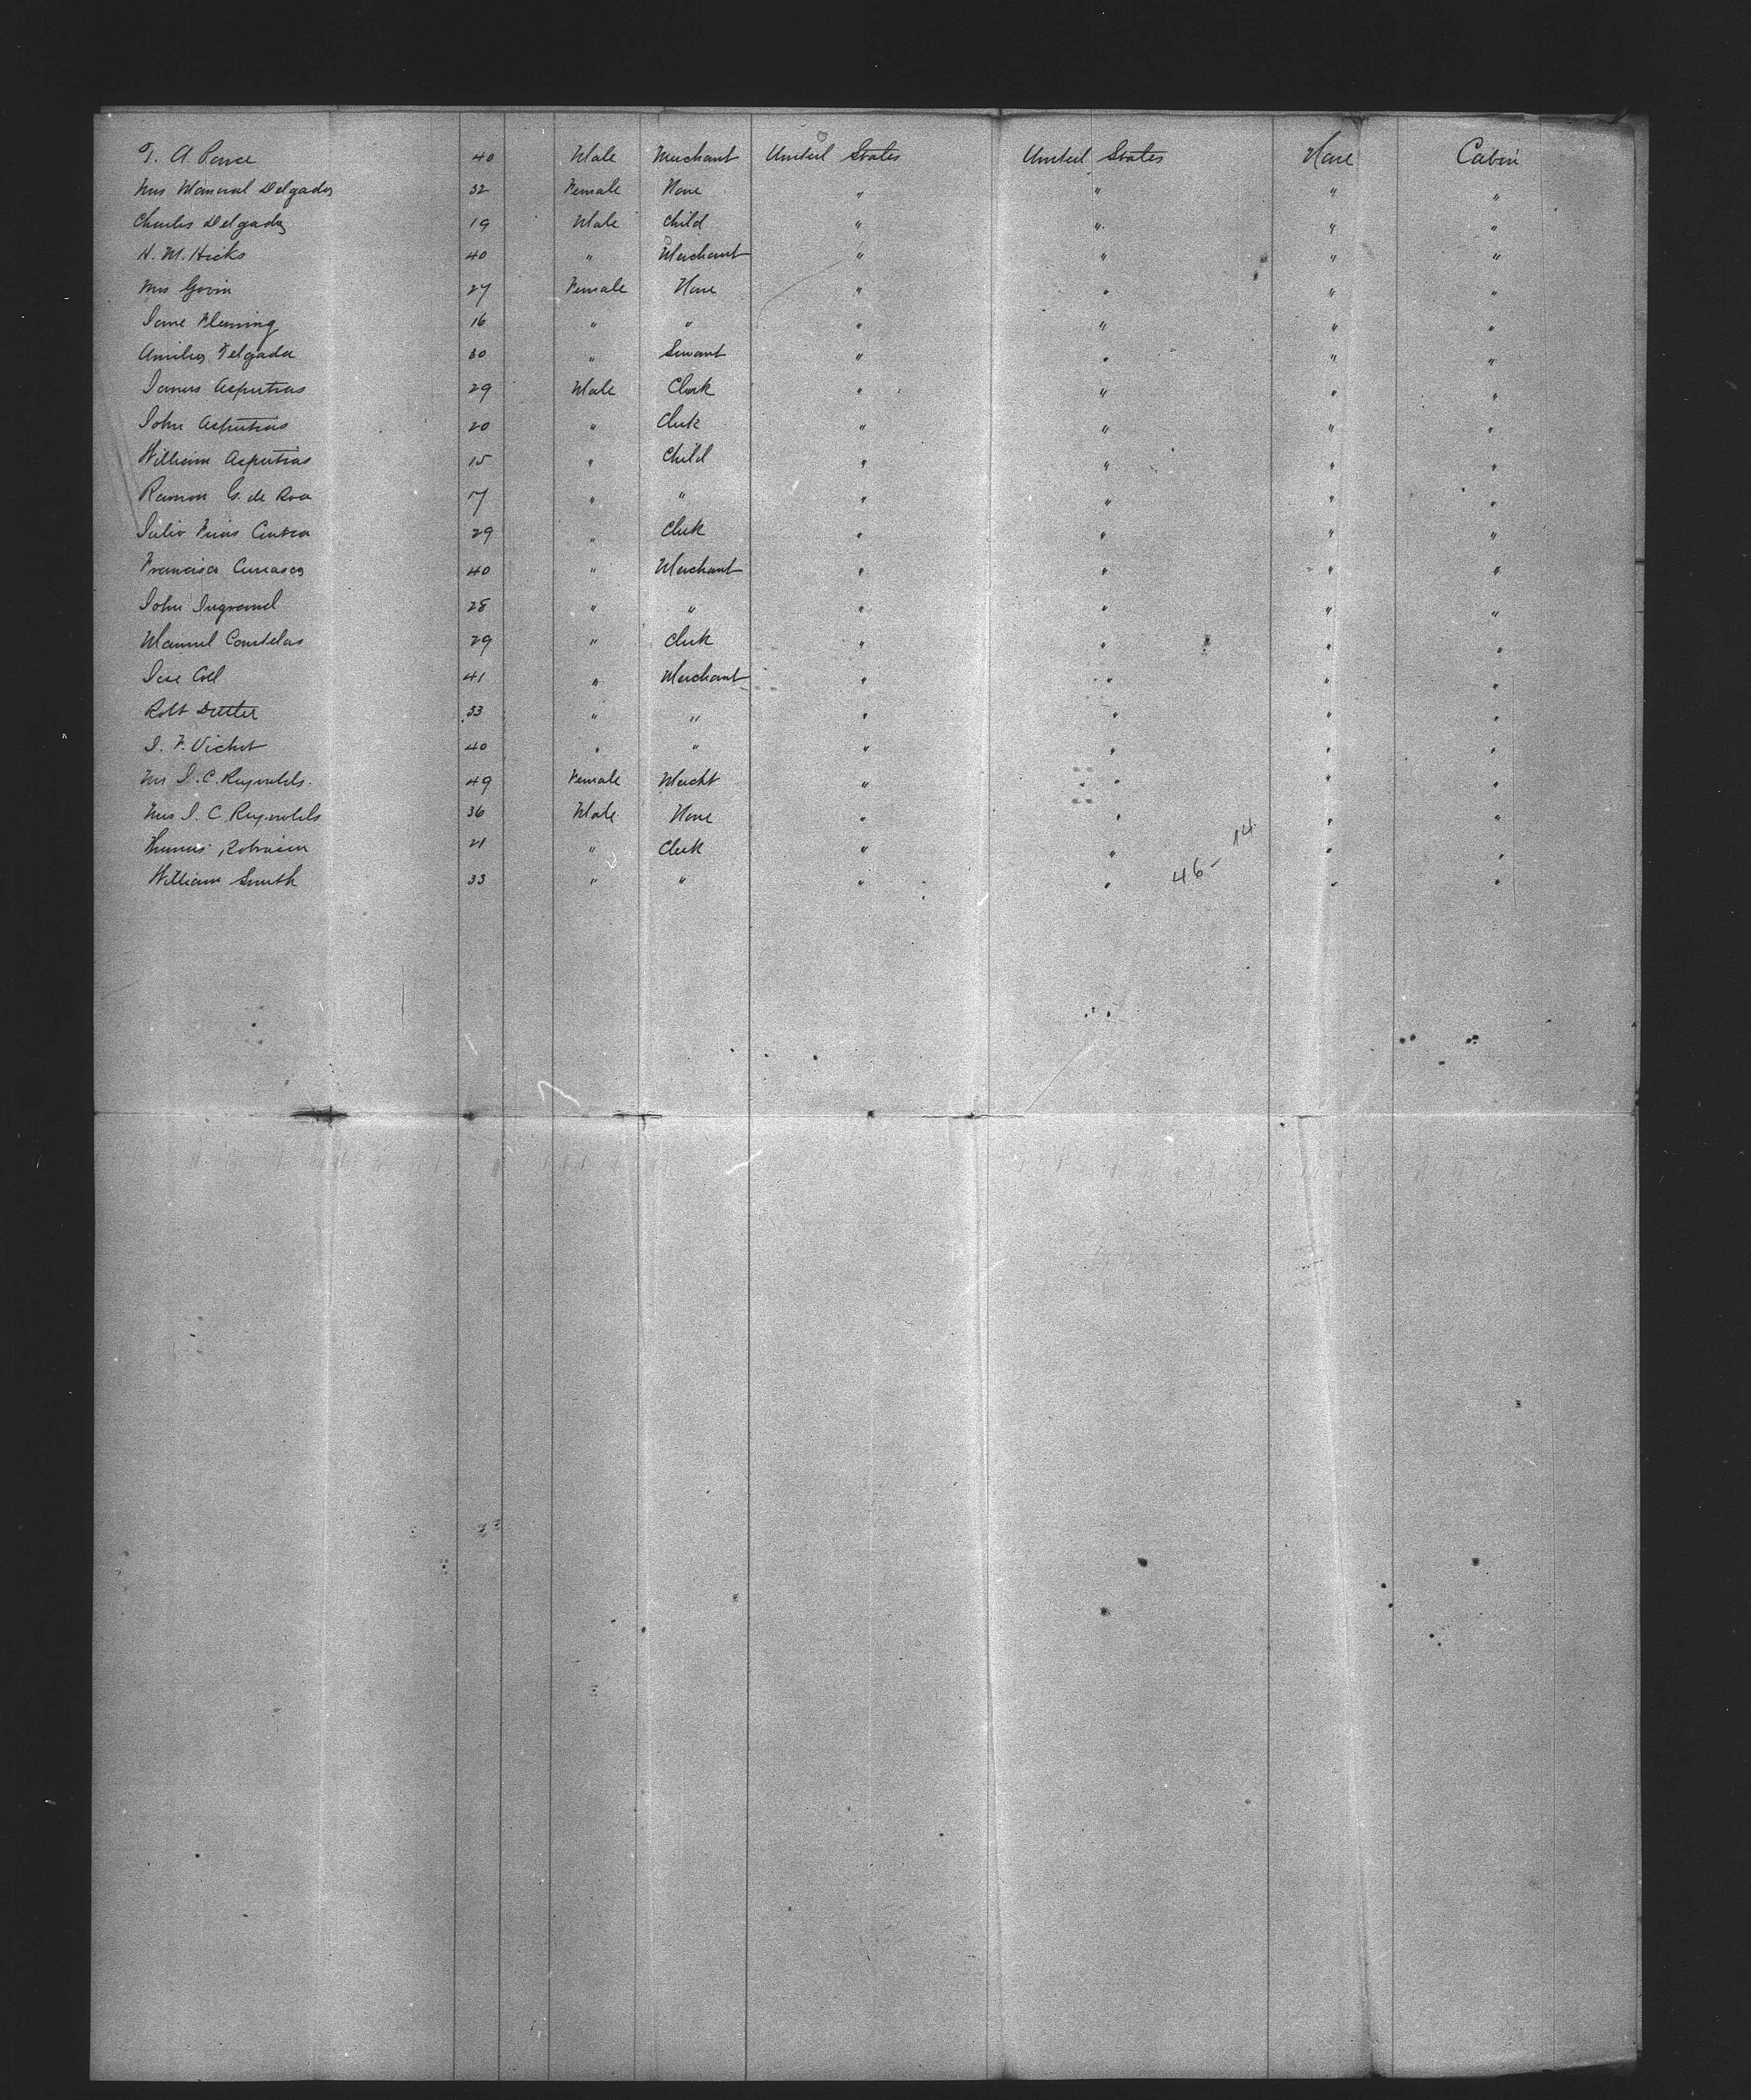 T. A. Ponce 40 Male Merchant United States United States None Cabin
Mrs Manuel Delgado 32 Female None " " " "
Charles Delgado 19 Male Child " " " "
H. M. Hicks 40 " Merchant " " " "
Mrs Govin 27 Female None " " " "
Jane Fleming 16 " " " " " "
Delgado 30 " Servant " " " "
James 29 Male Clerk " " " "
John 20 " Clerk " " " "
William 15 " Child " " " "
Ramon G. de Roa 17 " " " " " "
Julio Frias 29 " Clerk " " " "
Francisco 40 " Merchant " " " "
John 28 " " " " " "
Manuel 29 " Clerk " " " "
Jose Coll 41 " Merchant " " " "
Robt 33 " " " " " "
J. F. 40 " " " " " "
Mr J. C. Reynolds 49 Female Mercht " " " "
Mrs J. C. Reynolds 36 Male None " " " "
Robinson 21 " Clerk " " " "
William Smith 33 " " " " " "
46 - 14